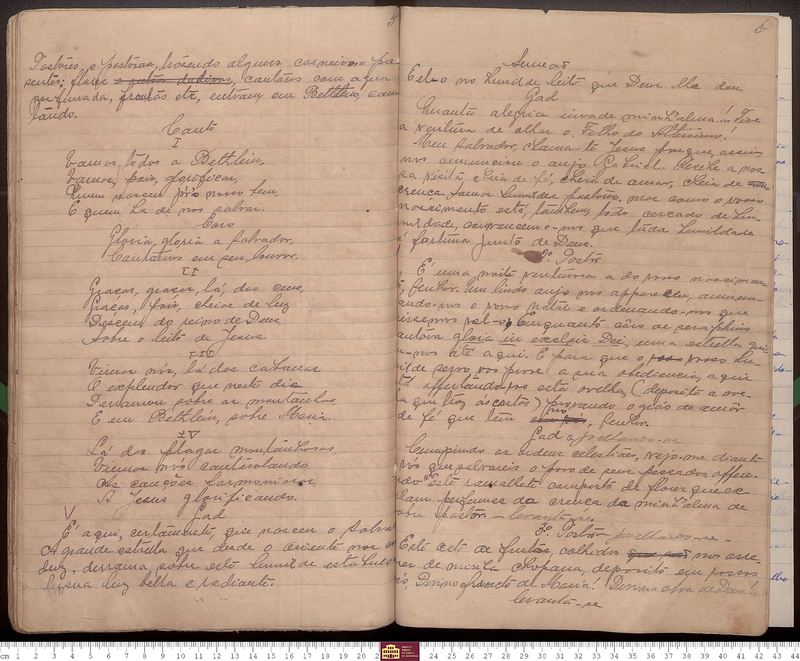 5
Pastôres, e pastôras, trasendo alguns carneiros e pre-
sentes; flores, cantáros com agua
perfumada, fructas etc, entram em Bethlem, can-
tando.
Canto
I
Vamos, todos a Bethlem,
Vamos, pois, glorificar,
Quem nasceu p'ra nosso bem,
E quem ha de nos salvar.
Côro
Gloria, gloria a Salvador,
Cantamos em seu louvor.
II
Graças, graças, lá dos ceus,
Graças, pois, cheias de luz
Descem do reino de Deus
Sobre o leito de Jesus.
III
Viemos nós, lá das cabanas
O explendor que neste dia
Derramou sobre as montanhas
E em Bethlem, sobre Maria.
IV
Lá das plagas montanhosas,
Viemos nós cantarolando
As canções harmoniosas,
A Jesus glorificando.
Gad
É aqui, certamente, que nasceu o Salva
A grande estrella que desde o oriente nos
duz, derrama sobre este humilde estabulo
luz bella e radiante.
6
Simeão
Eil-o no humilde leito que Deus lhe deu.
Gad
Quanta alegria invade minh'alma! Tive
a ventura de olhar o Filho do Altissimo!
Meu Salvador, chama-te Jesus porque, assim,
nos annunciou o anjo Gabriel. Recebe a nos-
sa visita cheia de fé, cheia de amor, cheia de
crença. Somos humildes pastôres, mas como o vosso
nascimento está, tambem, todo cercado de hu-
mildade, convencemo-nos que toda humildade
é fortuna junto de Deus.
2º. Pastôr
É uma noite venturosa a do vosso nascimen-
Senhor. Um lindo anjo nos appareceu, annun-
ando-nos o vosso natal e ordenando-nos que
vissemos vel-o. Enquanto côros de seraphins
cantava gloria in excelsis Deo, uma estrella gui-
u-nos até aqui. E para que o vosso hu-
milde servo, vos prove a sua obediencia, aqui
está offertando-vos esta ovelha, (deposita a ove-
a que traz ás costas) provando o gráo de amôr
de fé que tem nos, Senhor.
Gad ajoelhando-se
Cumprindo as ordens celestiaes, vejo-me diante
vós que salvareis o povo de seus peccados, offere-
ndo-vos este ramalhete composto de flores que ex-
lam perfumes da crença da minh'alma de
obre pastôr. - levanta-se.
3º. Pastôr ajoelhando-se -
Este cesto de frutas, colhidas nos arre-
dores de minha choupana, deposito em vossos
és, Divino fructo de Maria! Divina obra de Deus!
levanta-se